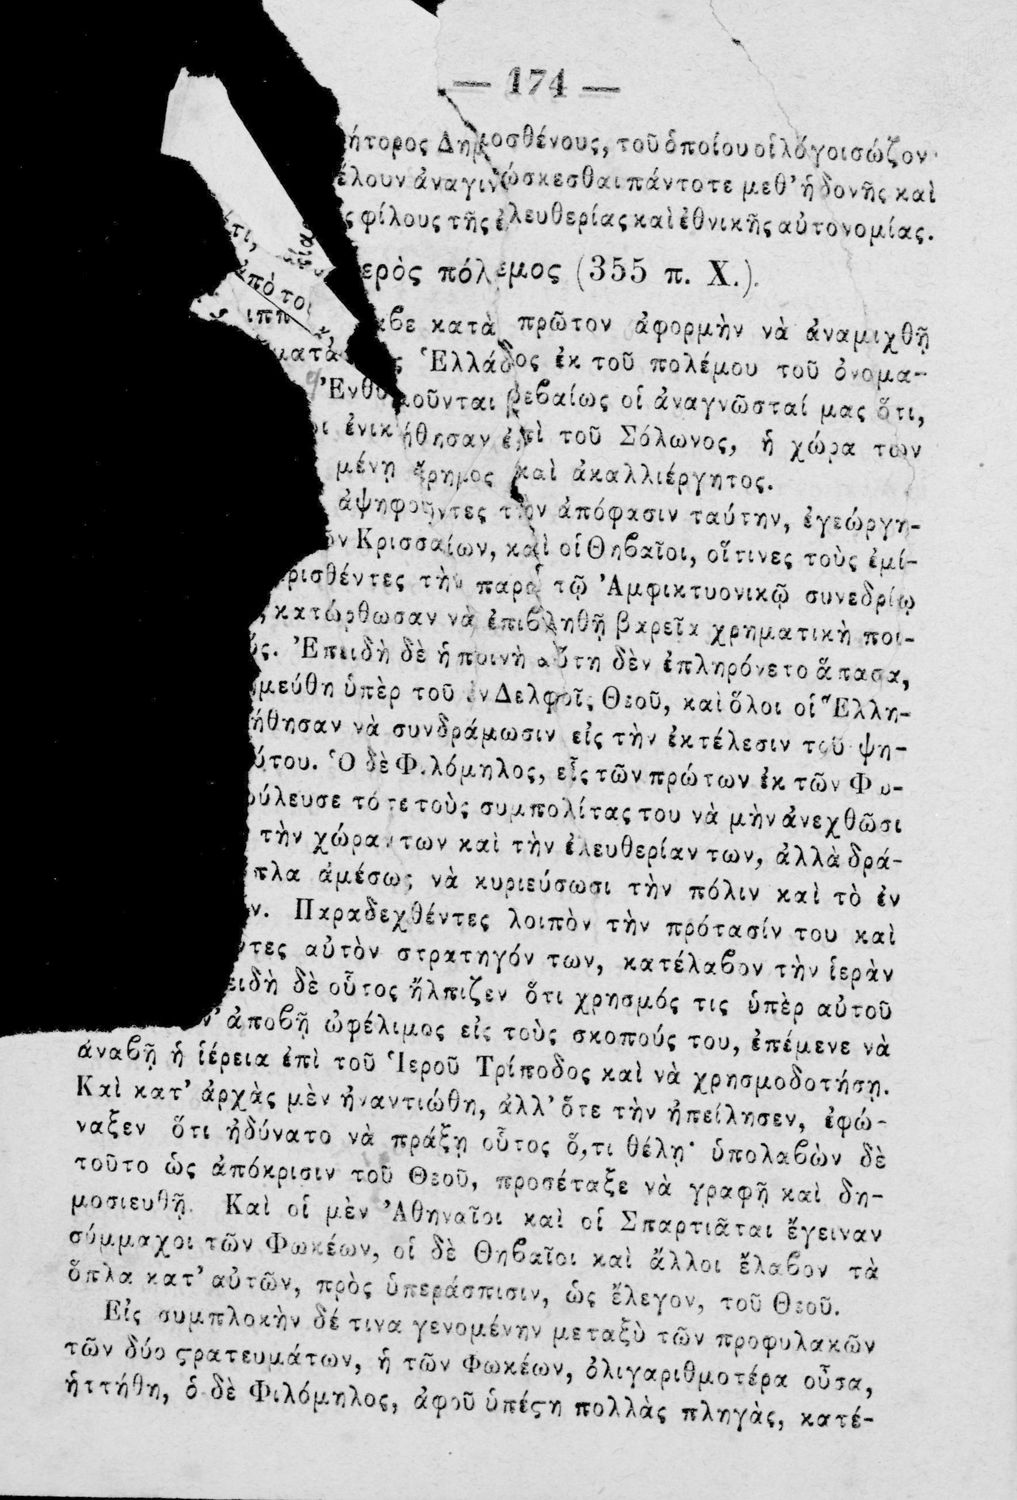 — 174 —
ήτορος Δημοσθένους, τοῦ ὁποίου οἱ λόγοι σώζον·
έλουν ἀναγινώσκεσθαι πάντοτε μεθ' ἡδονῆς καὶ
ς φίλους τῆς ἐλευθερίας καὶ ἐθνικῆς αὐτονομίας.
ερὸς πόλεμος (355 π. Χ.).
αβε κατὰ πρῶτον ἀφορμὴν νὰ ἀναμιχθῇ
ματα ς Ἑλλάδος ἐκ τοῦ πολέμου τοῦ ὀνομα-
Ἐνθυμοῦνται βεβαίως οἱ ἀναγνῶσταί μας ὅτι,
οι ἐνικήθησαν ἐπὶ τοῦ Σόλωνος, ἡ χώρα των
μένη ἔρημος καὶ ἀκαλλιέργητος.
ἀψηφοῦντες τὴν ἀπόφασιν ταύτην, ἐγεώργη-
ῶν Κρισσαίων, καὶ οἱ Θηβαῖοι, οἵτινες τοὺς ἐμί-
ρισθέντες τὴν παρὰ τῷ Ἀμφικτυονικῷ συνεδρίῳ
ς κατώρθωσαν νὰ ἐπιβληθῇ βαρεῖα χρηματικὴ ποι-
ύς. Ἐπειδὴ δὲ ἡ ποινὴ αὕτη δὲν ἐπληρόνετο ἅπασα,
ημεύθη ὑπὲρ τοῦ ἐν Δελφοῖς Θεοῦ, καὶ ὅλοι οἱ Ἕλλη-
ήθησαν νὰ συνδράμωσιν εἰς τὴν ἐκτέλεσιν τοῦ ψη-
ύτου. Ὁ δὲ Φιλόμηλος, εἷς τῶν πρώτων ἐκ τῶν Φω-
ούλευσε τότε τοὺς συμπολίτας του νὰ μὴν ἀνεχθῶσι
τὴν χώραν των καὶ τὴν ἐλευθερίαν των, ἀλλὰ δρά-
πλα ἀμέσως νὰ κυριεύσωσι τὴν πόλιν καὶ τὸ ἐν
ν. Παραδεχθέντες λοιπὸν τὴν πρότασίν του καὶ
ντες αὐτὸν στρατηγόν των, κατέλαβον τὴν ἱερὰν
ειδὴ δὲ οὗτος ἤλπιζεν ὅτι χρησμός τις ὑπὲρ αὐτοῦ
ν' ἀποβῇ ὠφέλιμος εἰς τοὺς σκοπούς του, ἐπέμενε νὰ
ἀναβῇ ἡ ἱέρεια ἐπὶ τοῦ Ἱεροῦ Τρίποδος καὶ νὰ χρησμοδοτήσῃ.
Καὶ κατ' ἀρχὰς μὲν ἠναντιώθη, ἀλλ' ὅτε τὴν ἠπείλησεν, ἐφώ-
ναξεν ὅτι ἠδύνατο νὰ πράξῃ οὗτος ὅ,τι θέλῃ· ὑπολαβὼν δὲ
τοῦτο ὡς ἀπόκρισιν τοῦ Θεοῦ, προσέταξε νὰ γραφῇ καὶ δη-
μοσιευθῇ. Καὶ οἱ μὲν Ἀθηναῖοι καὶ οἱ Σπαρτιᾶται ἔγειναν
σύμμαχοι τῶν Φωκέων, οἱ δὲ Θηβαῖοι καὶ ἄλλοι ἔλαβον τὰ
ὅπλα κατ' αὐτῶν, πρὸς ὑπεράσπισιν, ὡς ἔλεγον, τοῦ Θεοῦ.
Εἰς συμπλοκὴν δέ τινα γενομένην μεταξὺ τῶν προφυλακῶν
τῶν δύο ϛρατευμάτων, ἡ τῶν Φωκέων, ὀλιγαριθμοτέρα οὖσα,
ἡττήθη, ὁ δὲ Φιλόμηλος, ἀφοῦ ὑπέϛη πολλὰς πληγὰς, κατέ-